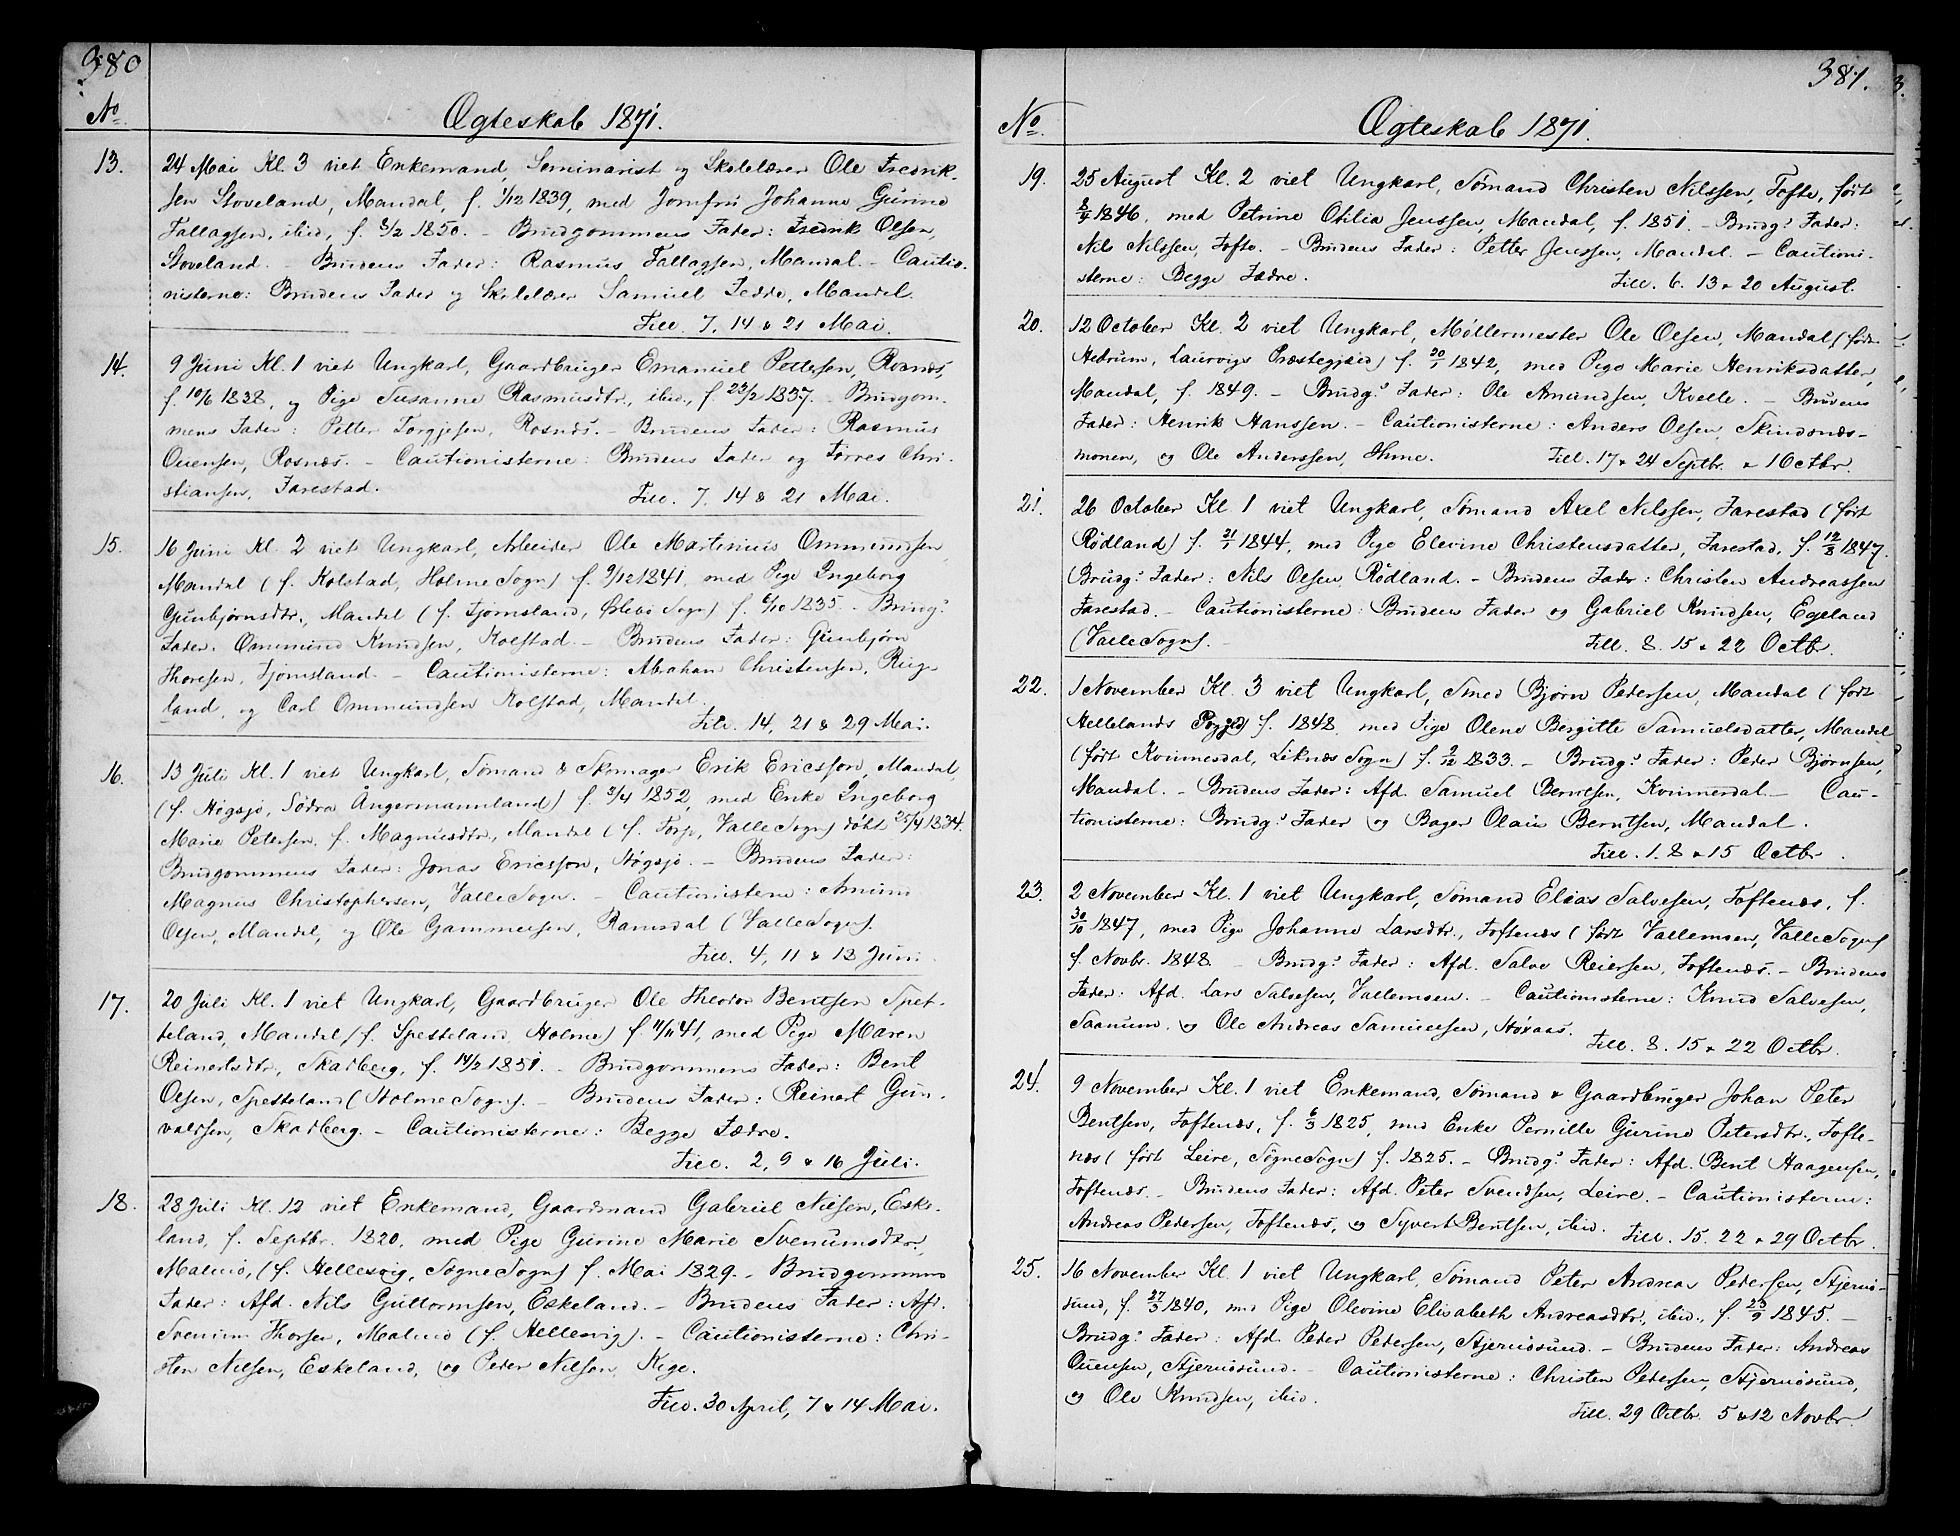 380
No.
Ægteskab 1871.
13. 24 Mai Kl. 3 viet Enkemand, Seminarist og Skolelærer Ole Fredrik-
sen Stoveland, Mandal, f. 1/12 1839, med Jomfru Johanne Gurine
Tallagsen, ibid, f. 8/2 1850. – Brudgommens Fader: Fredrik Olsen,
Stoveland. – Brudens Fader: Rasmus Tallagsen, Mandal. – Cautio-
nisterne: Brudens Fader og Skolelærer Samuel Fedde, Mandal.
Till. 7, 14 & 21 Mai.
14. 9 Juni Kl. 1 viet Ungkarl, Gaardbruger Emanuel Pettersen, Rosnæs,
f. 10/6 1838, og Pige Susanne Rasmusdtr., ibid., f. 23/2 1837. – Brudgom-
mens Fader: Petter Torgjesen, Rosnæs. – Brudens Fader: Rasmus
Ouensen, Rosnæs. – Cautionisterne: Brudens Fader og Tørres Chri-
stiansen, Farestad.
Till. 7. 14 & 21 Mai.
15. 16 Juni Kl. 2 viet Ungkarl, Arbeider Ole Martinius Ommundsen,
Mandal (f. Kolstad, Holme Sogn) f. 9/12 1841, med Pige Ingeborg
Gunbjørnsdtr., Mandal (f. Fjomsland, Øslebø Sogn) f. 6/10 1835. – Brudg.s
Fader: Ommund Knudsen, Kolstad. – Brudens Fader: Gunbjørn
Thoresen, Fjomsland. – Cautionisterne: Abraham Christensen, Ruge-
land, og Carl Ommundsen Kolstad, Mandal.
Till. 14, 21 & 29 Mai.
16. 13 Juli Kl. 1 viet Ungkarl, Sømand & Skomager Erik Ericsson, Mandal,
(f. Høgsjø, Södra Ångermannland) f. 3/4 1852, med Enke Ingeborg
Marie Petersen, f. Magnusdtr., Mandal (f. Torp, Valle Sogn) døbt 25/4 1834.
Brudgommens Fader: Jonas Ericsson, Høgsjø. – Brudens Fader:
Magnus Christophersen, Valle Sogn. – Cautionisterne: Amund
Olsen, Mandal, og Ole Gammelsen, Ramsdal (Valle Sogn).
Till. 4, 11 & 18 Juni.
17. 20 Juli Kl. 1 viet Ungkarl, Gaardbruger Ole Theodor Bentsen Spet-
teland, Mandal (f. Spetteland Holme) f. 11/11 41, med Pige Maren
Reinertsdtr., Skadberg, f. 14/2 1851. – Brudgommens Fader: Bent
Olsen, Spetteland (Holme Sogn). – Brudens Fader: Reinert Gun-
valdsen, Skadberg. – Cautionisterne: Begge Fædre.
Till. 2, 9 & 16 Juli.
18. 28 Juli Kl. 12 viet Enkemand, Gaardmand Gabriel Nilsen, Eske-
land, f. Septbr. 1820, med Pige Gurine Marie Svenumsdtr.,
Malmø, (f. Hellesvig, Søgne Sogn) f. Mai 1829. – Brudgommens
Fader: Afd. Nils Guttormsen, Eskeland. – Brudens Fader: Afd.
Svenum Thorsen, Malmø (f. Hellesvig). – Cautionisterne: Chri-
sten Nilsen, Eskeland, og Peder Nilsen, Kige.
Till. 30 April, 7 & 14 Mai.
381.
No.
Ægteskab 1871.
19. 25 August Kl. 2 viet Ungkarl, Sømand Christen Nilssen, Tofte, født
8/4 1846, med Petrine Othilia Jenssen, Mandal, f. 1851. – Brudg.s Fader:
Nils Nilssen, Tofte. – Brudens Fader: Petter Jenssen, Mandal. – Cautioni-
sterne: Begge Fædre.
Till. 6. 13 & 20 August.
20. 12 October Kl. 2 viet Ungkarl, Møllermester Ole Olsen, Mandal (født
Hedrum, Laurvigs Præstegjæld) f. 20/1 1842, med Pige Marie Henriksdatter,
Mandal, f. 1849. – Brudg.s Fader: Ole Amundsen, Kvelle. – Brudens
Fader: Henrik Hanssen. – Cautionisterne: Anders Olsen, Skindsnæs-
monen, og Ole Anderssen, Ihme.
Till. 17 & 24 Septbr. & 1 Octbr.
21. 26 October Kl. 1 viet Ungkarl, Sømand Axel Nilssen, Farestad (født
Rödland) f. 21/1 1844, med Pige Elevine Christensdatter, Farestad, f. 12/3 1847.
Brudg.s Fader: Nils Olsen, Rödland. – Brudens Fader: Christen Andreassen
Farestad. – Cautionisterne: Brudens Fader og Gabriel Knudsen, Egeland
(Valle Sogn). –
Till. 8. 15 & 22 Octbr.
22. 1 November Kl. 3 viet Ungkarl, Smed Bjørn Pedersen, Mandal (født
Hellelands Prgjd) f. 1848, med Pige Olene Bergitte Samuelsdatter, Mandal
(født Kvinnesdal, Liknæs Sogn) f. 9/12 1833. – Brudg.s Fader: Peder Bjørnsen,
Mandal. – Brudens Fader: Afd. Samuel Berntsen, Kvinnesdal. – Cau-
tionisterne: Brudg.s Fader og Bager Olaus Berntsen, Mandal.
Till. 1. 8 & 15 Octbr.
23. 2 November Kl. 1 viet Ungkarl, Sømand Elias Salvesen, Toftenæs, f.
30/10 1847, med Pige Johanne Larsdtr., Toftenæs (født Vallemoen, Valle Sogn)
f. Novbr. 1848. – Brudg.s Fader: Afd. Salve Reiersen, Toftenæs. – Brudens
Fader: Afd. Lars Salvesen, Vallemoen. – Cautionisterne: Knud Salvesen,
Saanum, og Ole Andreas Samuelsen, Høvaas.
Till. 8. 15 & 22 Octbr.
24. 9 November Kl. 1 viet Enkemand, Sømand & Gaardbruger Johan Peter
Bentsen, Toftenæs, f. 6/3 1825, med Enke Pernille Gurine Petersdtr., Tofte-
næs (født Leire, Søgne Sogn) f. 1825. – Brudg.s Fader: Afd. Bent Haagensen,
Toftenæs. – Brudens Fader: Afd. Peter Svendsen, Leire. – Cautionisterne:
Andreas Pedersen, Toftenæs, og Syvert Bentsen, ibid.
Till. 15. 22 & 29 Octbr.
25. 16 November Kl. 1 viet Ungkarl, Sømand Peter Andreas Pedersen, Stjernö-
sund, f. 27/3 1840, med Pige Olevine Elisabeth Andreasdtr., ibid., f. 23/9 1845. –
Brudg.s Fader: Afd. Peder Pedersen, Stjernösund. – Brudens Fader: Andreas
Ouensen, Stjernösund. – Cautionisterne: Christen Pedersen, Stjernösund,
og Ole Knudsen, ibid.
Till. 29 Octbr. 5 & 12 Novbr.